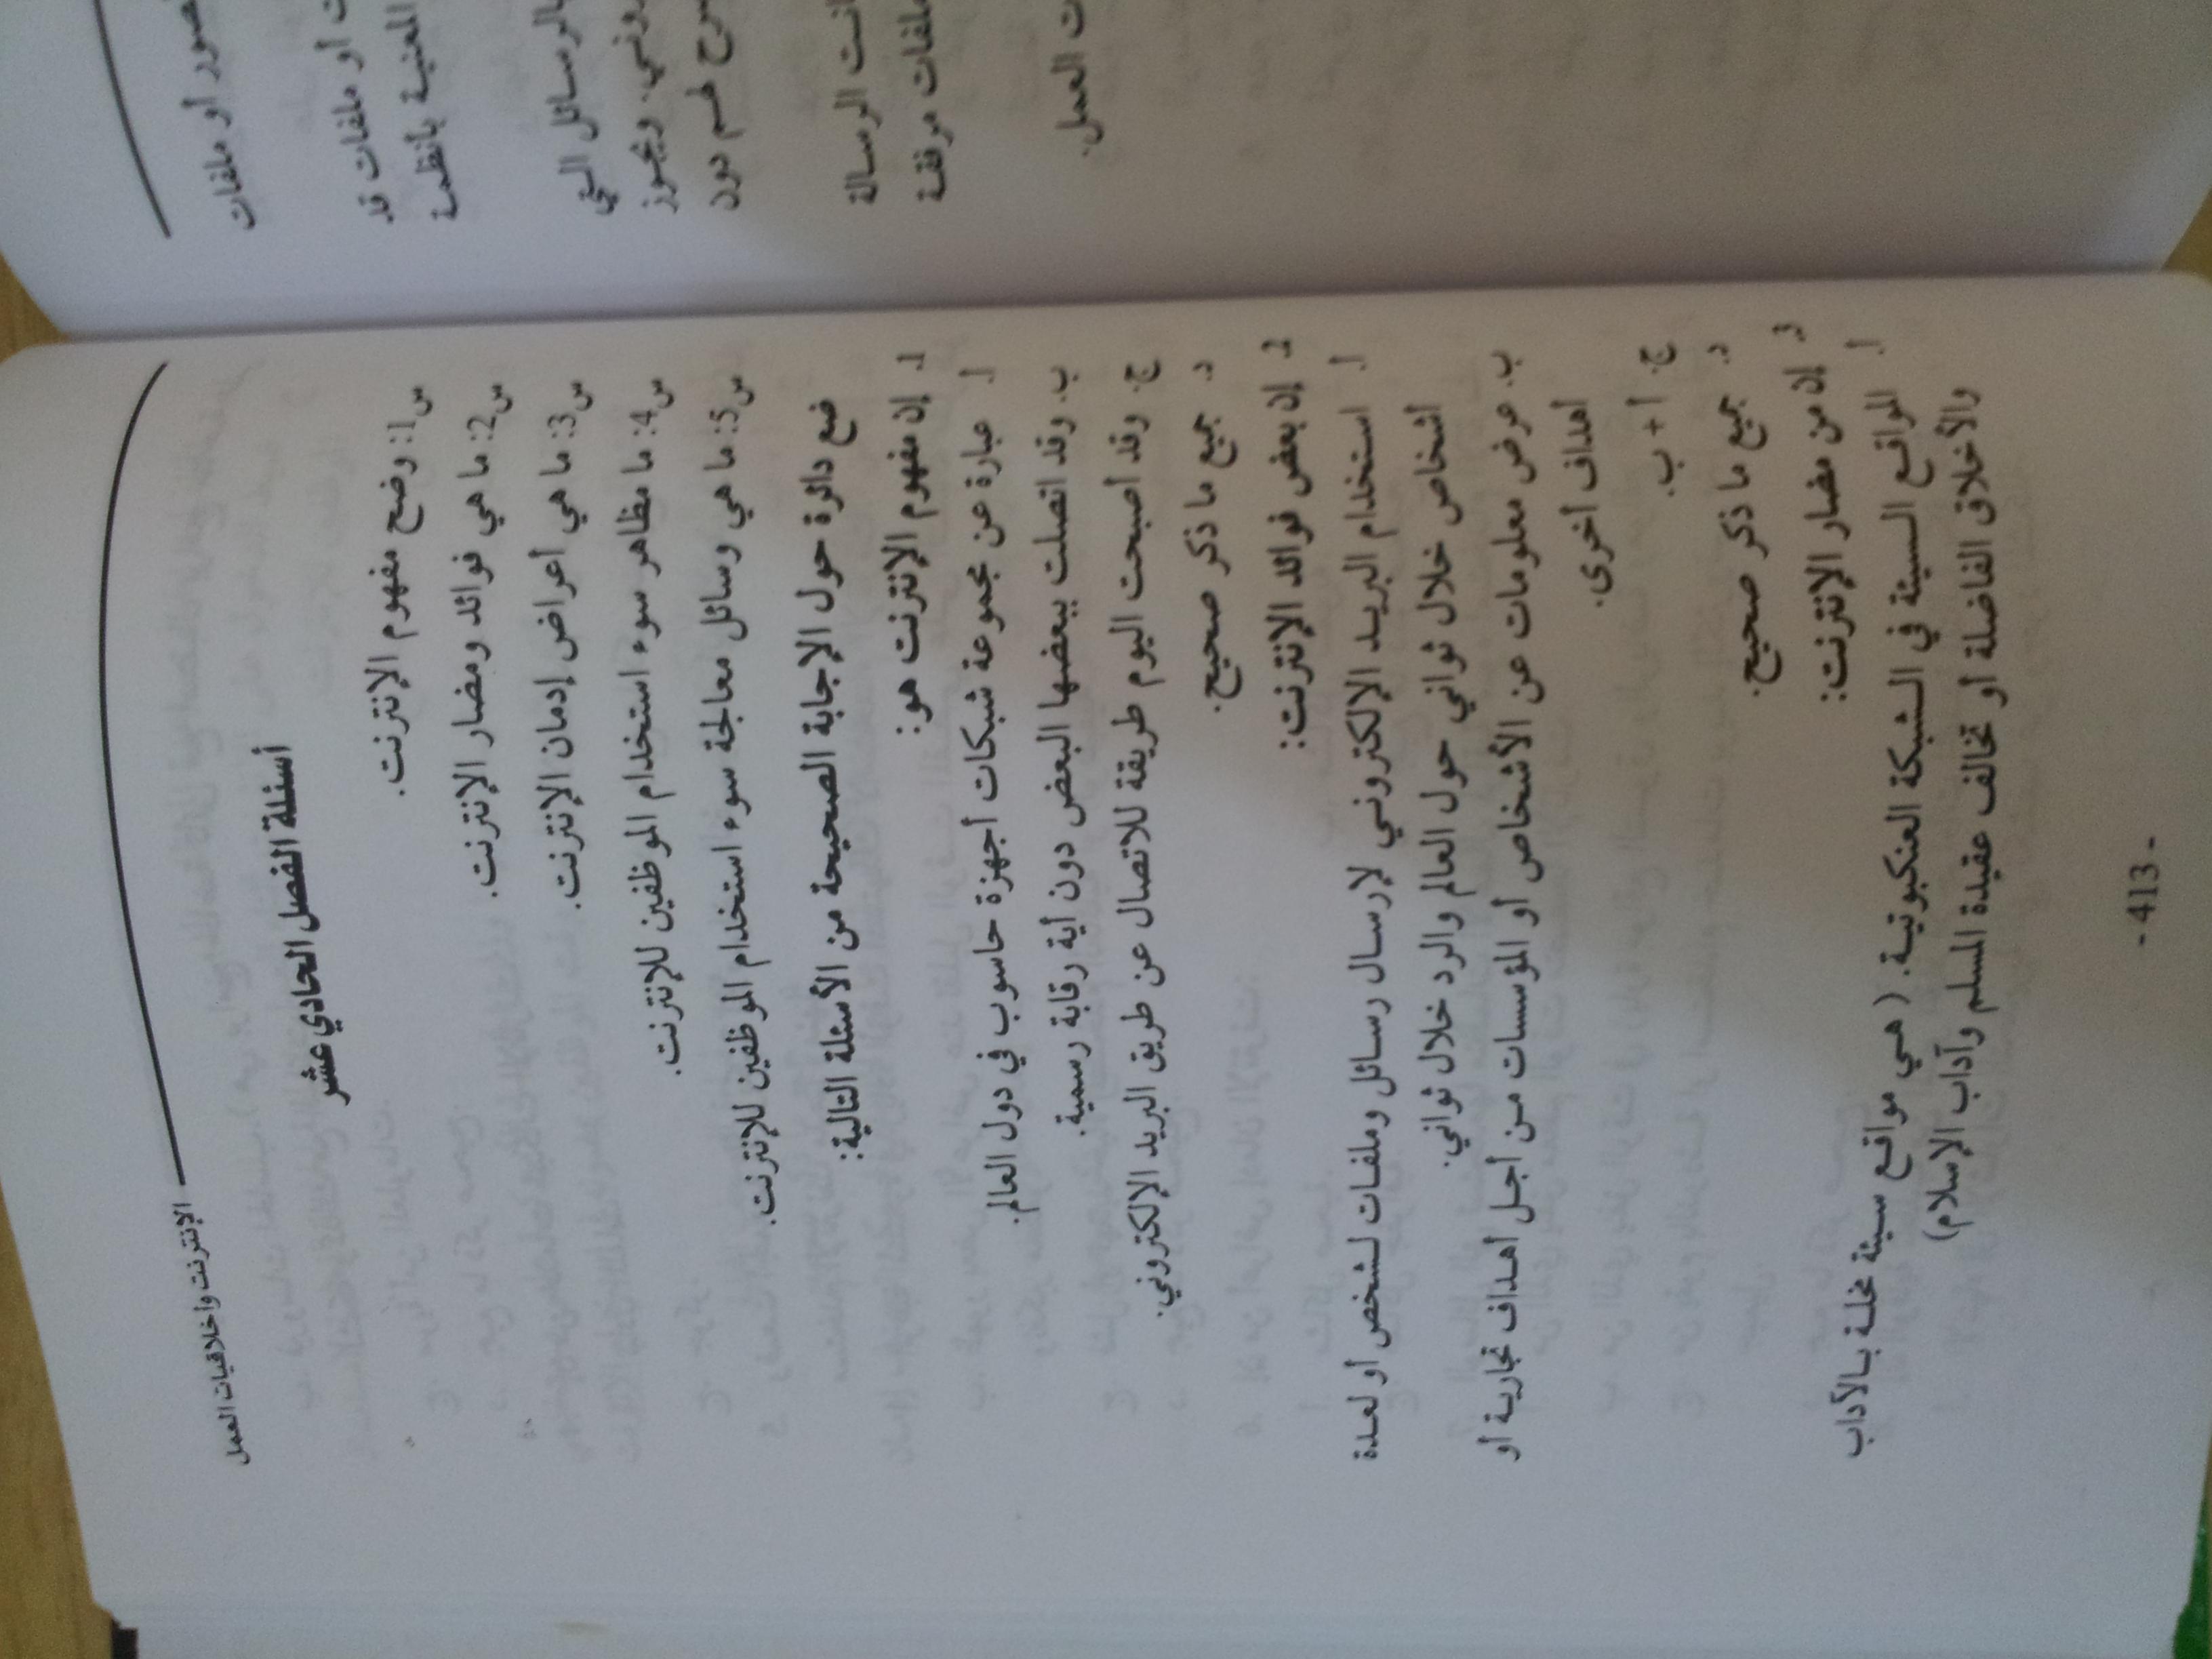 الإنترنت وأخلاقيات العمل
أسئلة الفصل الحادي عشر
س1: وضح مفهوم الإنترنت.
س2: ما هي فوائد ومضار الإنترنت.
س3: ما هي أعراض إدمان الإنترنت.
س4: ما مظاهر سوء استخدام الموظفين للإنترنت.
س5: ما هي وسائل معالجة سوء استخدام الموظفين للإنترنت.
ضع دائرة حول الإجابة الصحيحة من الأسئلة التالية:
1. إن مفهوم الإنترنت هو:
أ. عبارة عن مجموعة شبكات أجهزة حاسوب في دول العالم.
ب. وقد اتصلت ببعضها البعض دون أية رقابة رسمية.
ج. وقد أصبحت اليوم طريقة للاتصال عن طريق البريد الإلكتروني.
د. جميع ما ذكر صحيح.
2. إن بعض فوائد الإنترنت:
أ. استخدام البريد الإلكتروني لإرسال رسائل وملفات لشخص أو لعدة
أشخاص خلال ثواني حول العالم والرد خلال ثواني.
ب. عرض معلومات عن الأشخاص أو المؤسسات من أجل أهداف تجارية أو
أهداف أخرى.
ج. أ + ب.
د. جميع ما ذكر صحيح.
3. إن من مضار الإنترنت:
أ. المواقع السيئة في الشبكة العنكبوتية. (هي مواقع سيئة مخلة بالآداب
والأخلاق الفاضلة أو تخالف عقيدة المسلم وآداب الإسلام)
- 413 -
صور أو ملفات
ت أو ملفات قد
المعنية بأنظمة
الرسائل التي
روني. ويجوز
سرح لهم دون
انت الرسالة
ملفات مرفقة
ت العمل.